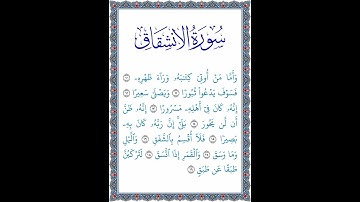 سُورَةُ الِانْشِقَاقِ
وَأَمَّا مَنْ أُوتِيَ كِتَٰبَهُۥ وَرَآءَ ظَهْرِهِۦ ۝١٠
فَسَوْفَ يَدْعُوا۟ ثُبُورًا ۝١١ وَيَصْلَىٰ سَعِيرًا ۝١٢
إِنَّهُۥ كَانَ فِىٓ أَهْلِهِۦ مَسْرُورًا ۝١٣ إِنَّهُۥ ظَنَّ
أَن لَّن يَحُورَ ۝١٤ بَلَىٰٓ إِنَّ رَبَّهُۥ كَانَ بِهِۦ
بَصِيرًا ۝١٥ فَلَآ أُقْسِمُ بِٱلشَّفَقِ ۝١٦ وَٱلَّيْلِ
وَمَا وَسَقَ ۝١٧ وَٱلْقَمَرِ إِذَا ٱتَّسَقَ ۝١٨ لَتَرْكَبُنَّ
طَبَقًا عَن طَبَقٍ ۝١٩